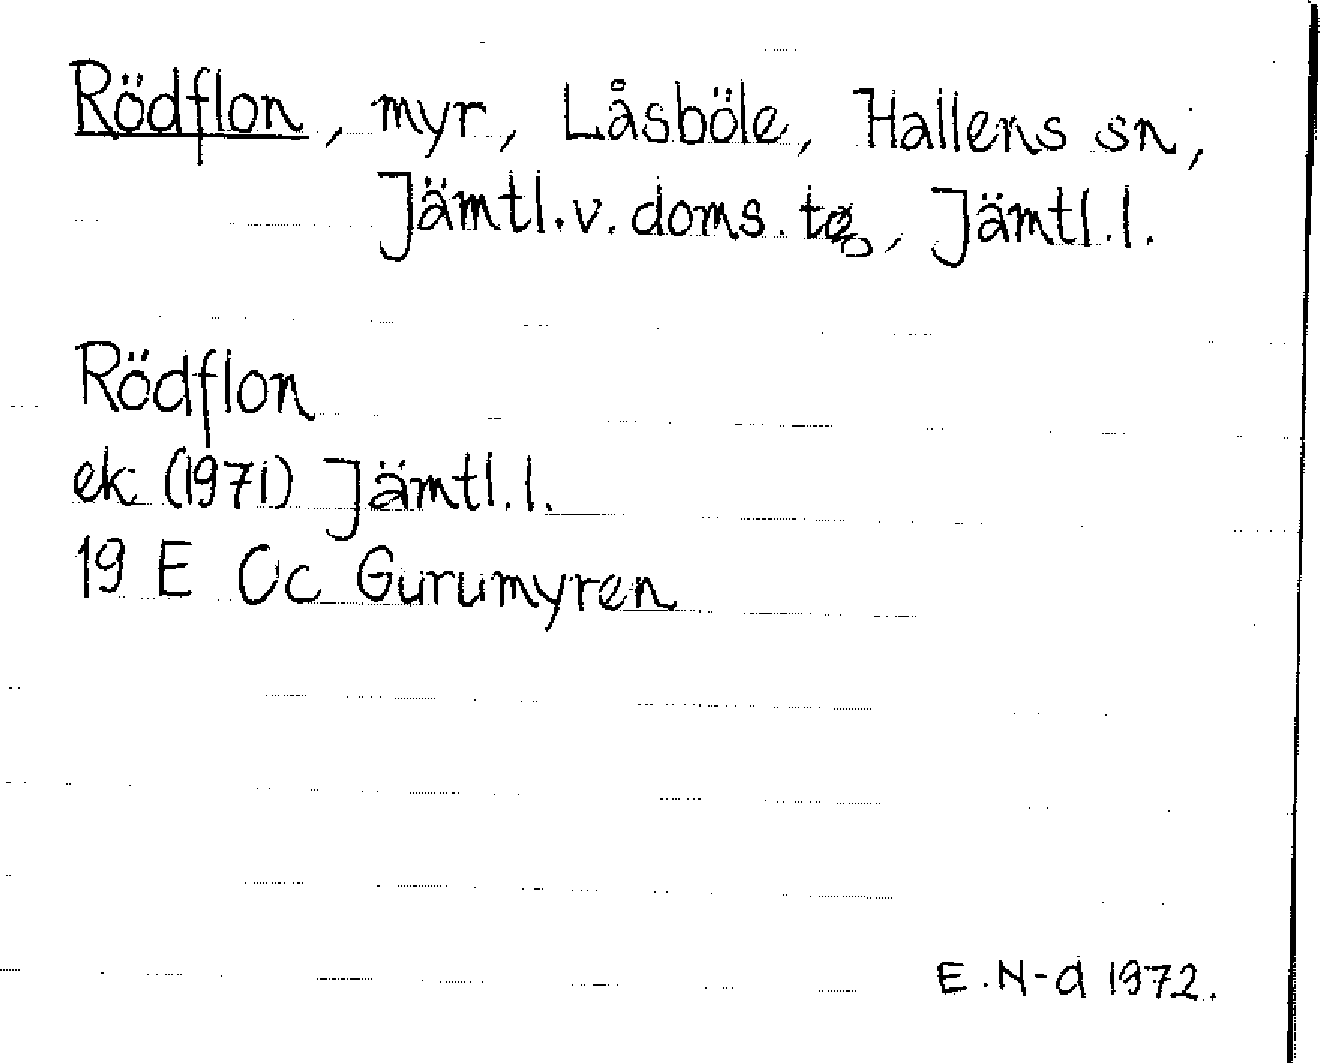 Rödflon, myr, Låsböle, Hallens sn,
Jämtl. v. doms. tg, Jämtl. l.
Rödflon
ek (1971) Jämtl. l.
19 E 0c Gurumyren
E. N-d 1972.